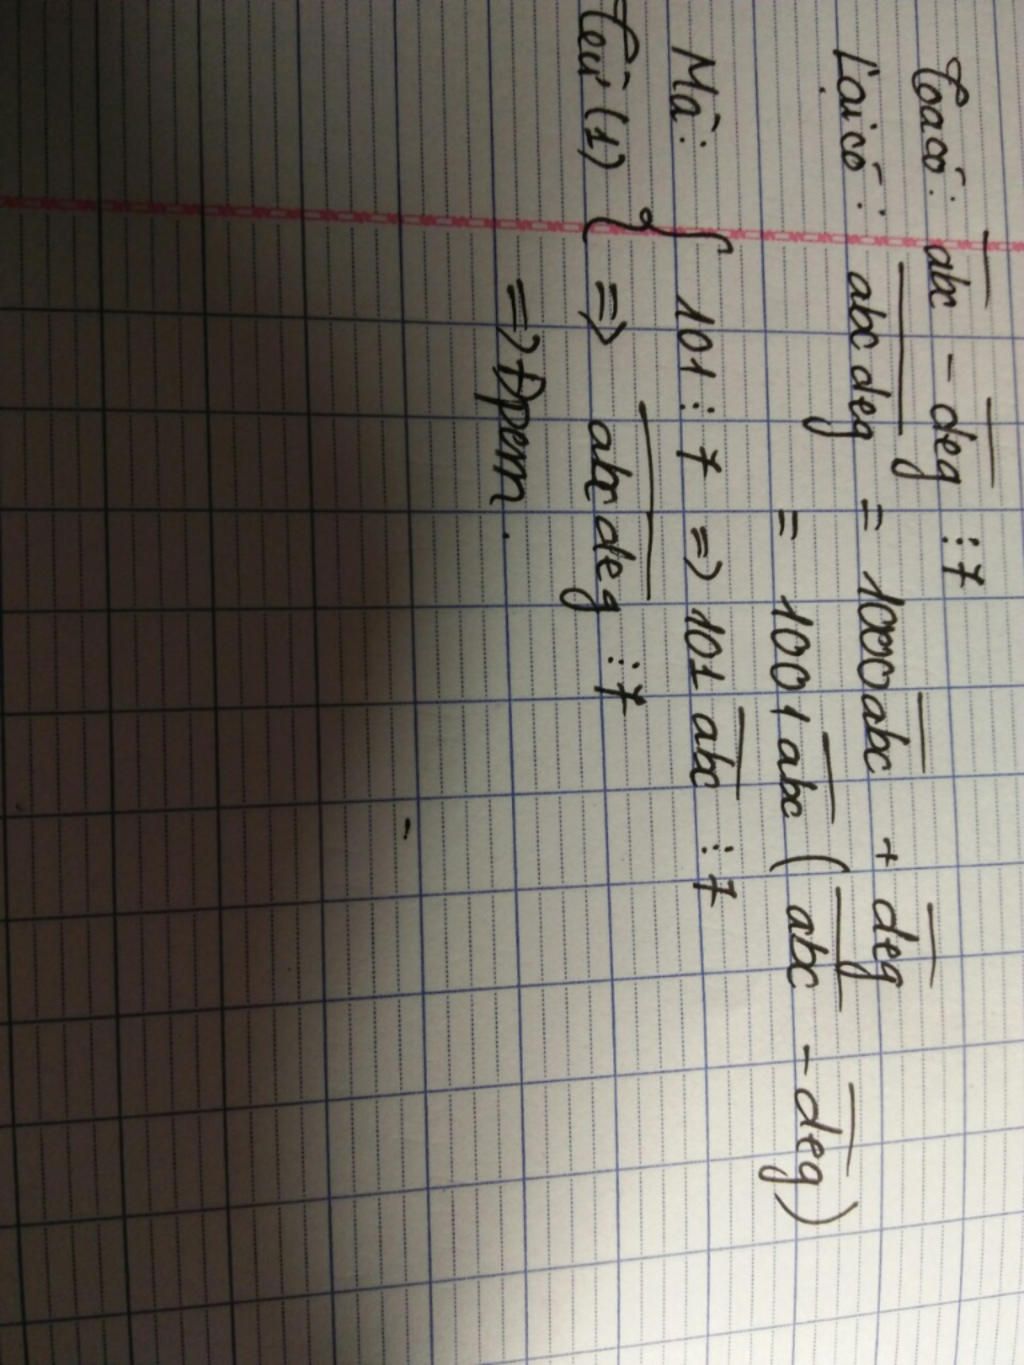 Ta có: abc - deg ⋮ 7
Lại có: abcdeg = 1000abc + deg
= 1001abc (abc - deg)
Mà: { 101 ⋮ 7 => 101abc ⋮ 7
Từ (1) { => abcdeg ⋮ 7
=> Đpcm.